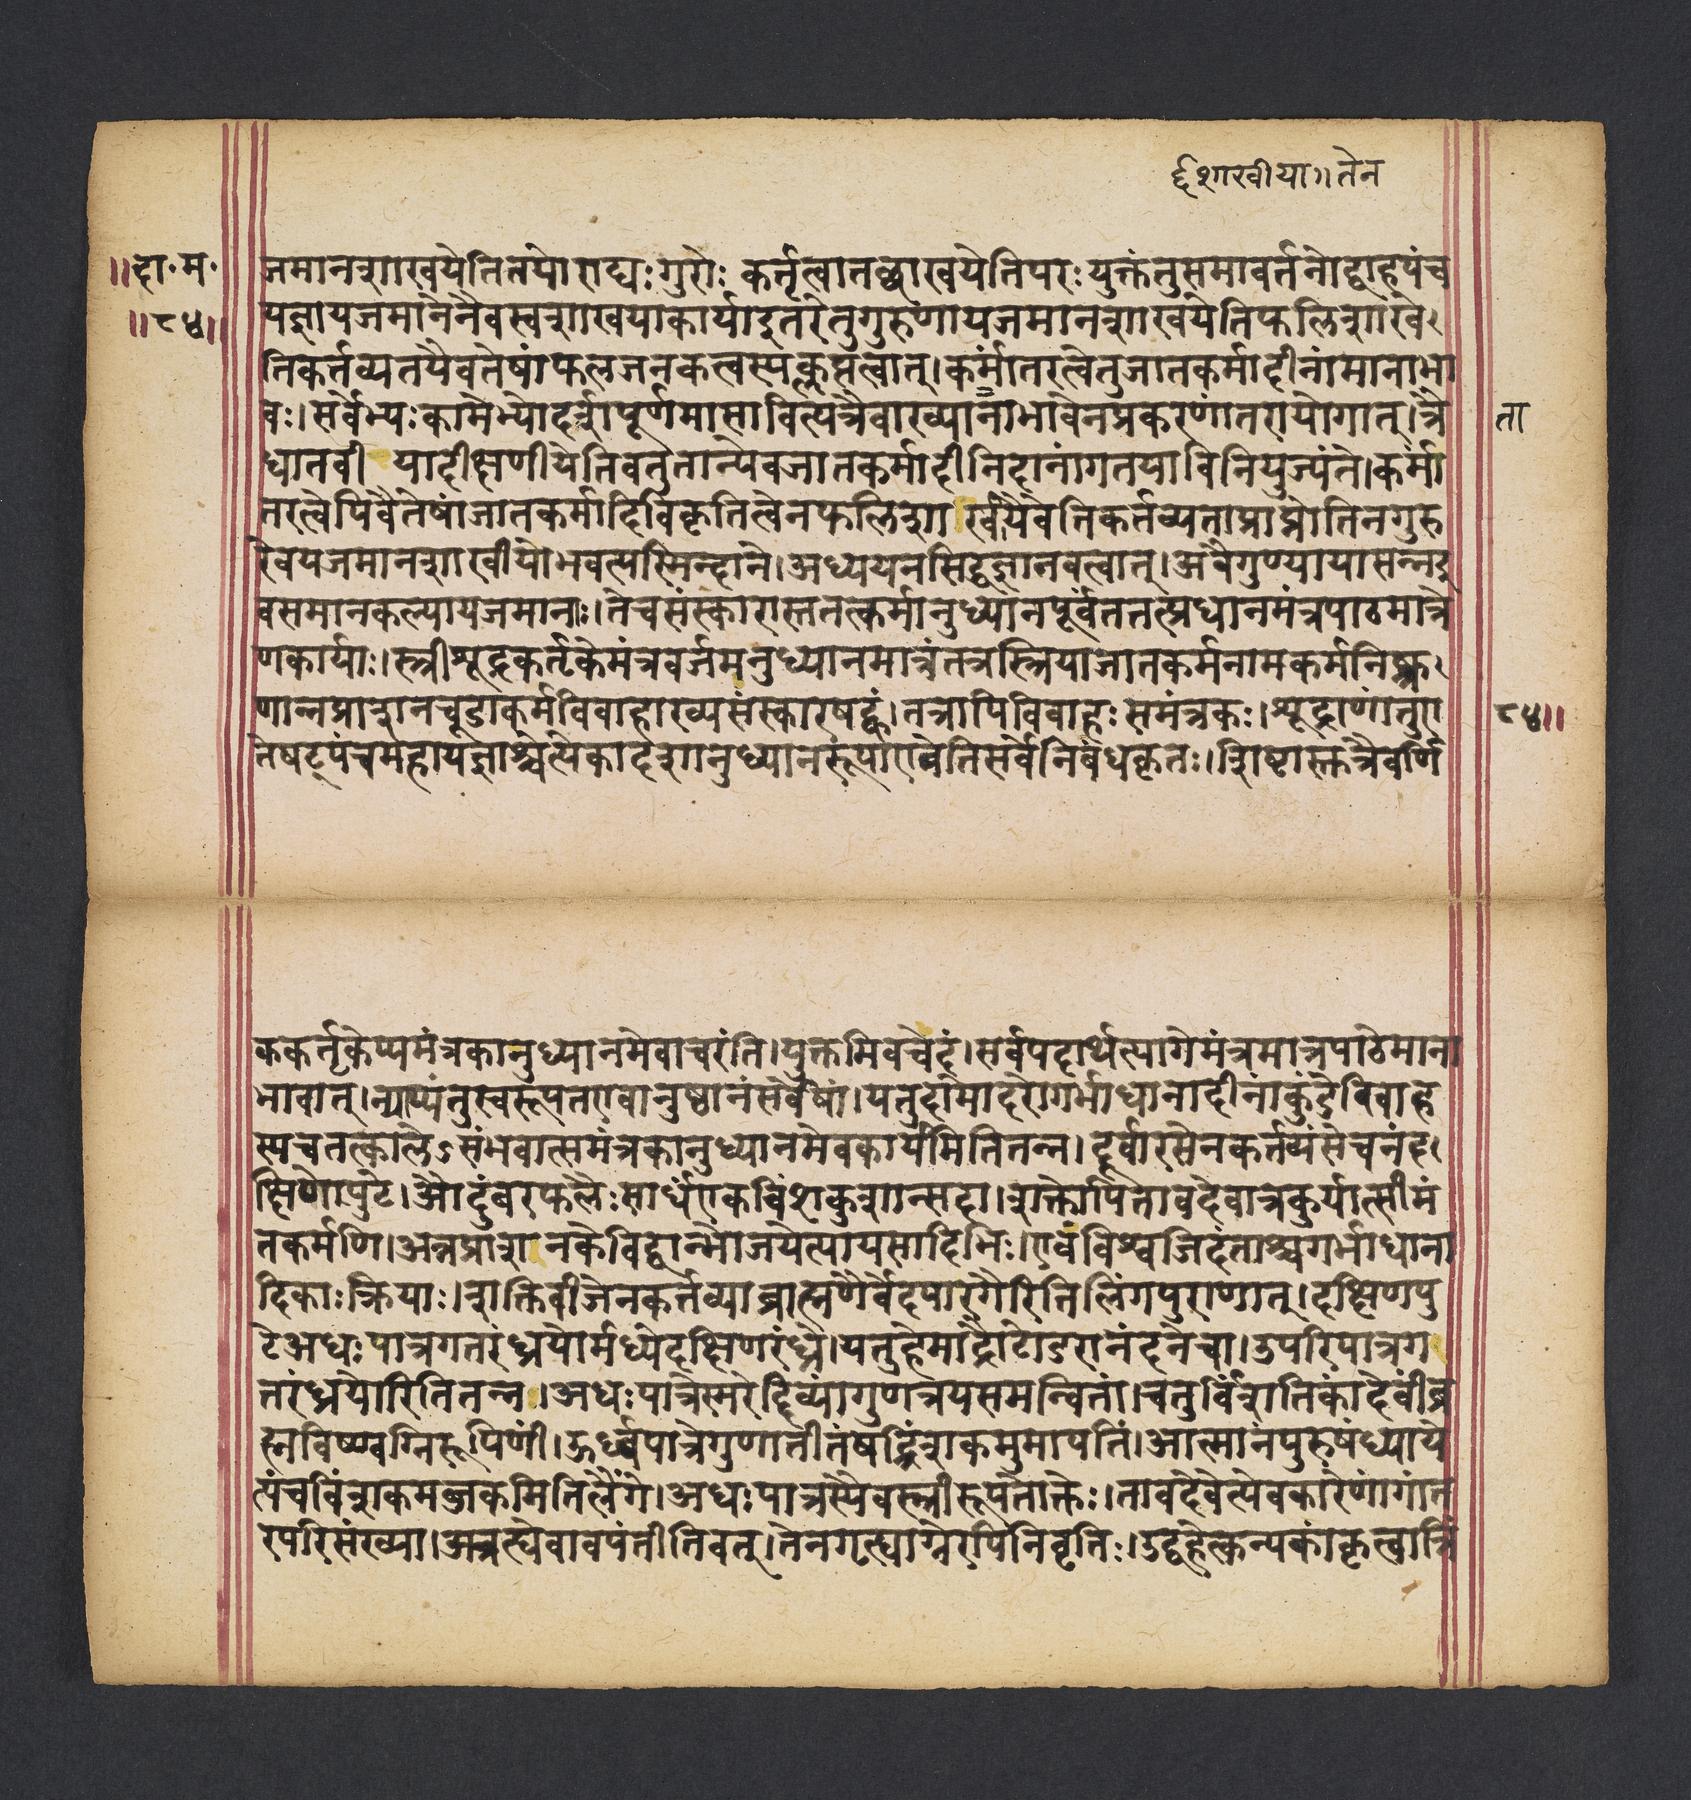 र्द्दशाखीया॥तेन
॥दा॰म॰
॥८४॥
जमानशाखयेतितयोराद्यः गुरोः कर्तृत्वातच्छाखयेतिपरः युक्तंतुसमावर्तनोद्वाहपंच
यज्ञायजमानेनैवस्वशाखयाकार्यादुतरेतुगुरुणायजमानशाखयेतिफलिशाखे
तिकर्त्तव्यतयैवतेषांफलजनकत्वस्यक्लृप्तत्वात्।कर्मांतरत्वेतुजातकर्मादीनांमानाभा
वः।सर्वेभ्यःकामेभ्योदर्शपूर्णमासावित्यत्रैवाख्यानाभावेनप्रकरणांतरायोगात्।त्रै
ता
धातवी यादीक्षणीयेतिवतुतान्येवजातकर्मादीनिदानांगतयाविनियुज्यंते।कर्मां
तरत्वेपिवैतेषांजातकर्मादिविकृतित्वेनफलिशा खयैवेतिकर्तव्यताप्राप्नोतिनगुरु
रेवयजमानशाखीयोभवत्यस्मिन्दाने।अध्ययनसिद्धज्ञानवत्वात्।अवैगुण्यायासन्नदु
वसमानकल्पायजमानाः।तेचसंस्कारास्ततत्कर्मानुध्यानपूर्वंततत्प्रधानमंत्रपाठमात्रे
णकार्याः।स्त्रीशूद्रकर्तृकेमंत्रवर्जमनुध्यानमात्रंतत्रस्त्रियाजातकर्मनामकर्मनिष्क्र
णान्नप्राशनचूडाकर्मविवाहाख्यसंस्कारषट्कं।तत्रापिविवाहः समंत्रकः।शूद्राणांतुए
८४॥
तेषट्पंचमहायज्ञाश्चेत्येकादशानुध्यानरूपाएवेतिसर्वेनिबंधकृतः।शिष्टास्तुत्रैवर्णि
ककर्तृकेप्यमंत्रकानुध्यानमेवाचरंति।युक्तमिवचेदं।सर्वपदार्थत्यागेमंत्रमात्रपाठेमाना
भावात्।न्याय्यंतुस्वरूपतएवानुष्ठानंसर्वेषां।यतुदामोदरोगर्भाधानादीनांकुंडेविवाहे
स्यचतत्कालेऽसंभवात्समंत्रकानुध्यानमेवकार्यमितितन्न।दूर्वारसेनकर्त्तव्यंसेचनंद
क्षिणेपुटे।औदुंबरफलैःसार्धंएकविंशकुशान्सदा।शक्तोपितावदेवात्रकुर्यात्सीमं
तकर्मणि।अन्नप्राश नकेविद्वान्भोजयेत्पायसादिभिः।एवंविश्वजिदंताश्चगर्भाधाना
दिकाःक्रियाः।शक्तिबीजेनकर्त्तव्याब्राह्मणैर्वेदपारगैरितिलिंगपुराणात्।दक्षिणपु
टेअधःपात्रगतरंध्रयोर्मध्येदक्षिणरंध्रे।यतुहेमाद्रौटोडरानंदेचा।उपरिपात्रग
तरंध्रयोरितितन्न।अधःपात्रेस्मरेद्दिव्यांगुणत्रयसमन्वितां।चतुर्विंशतिकांदेवींब्र
ह्मविष्ण्वग्निरूपिणीं।ऊर्ध्वपात्रेगुणातीतंषड्विंशकमुमापतिं।आत्मानंपुरुषंध्याये
त्पंचविंशकमजकमितिलैंगे।अधःपात्रस्यैवस्त्रीरूपतोक्तेः।तावदेवेत्येवकारेणांगांत
रेपरिसंख्या।अत्रत्येवावपंतीतिवत्।तेनगृह्याग्नेरपिनिवृतिः।उद्वहेत्कन्यकांकृत्वात्रिं